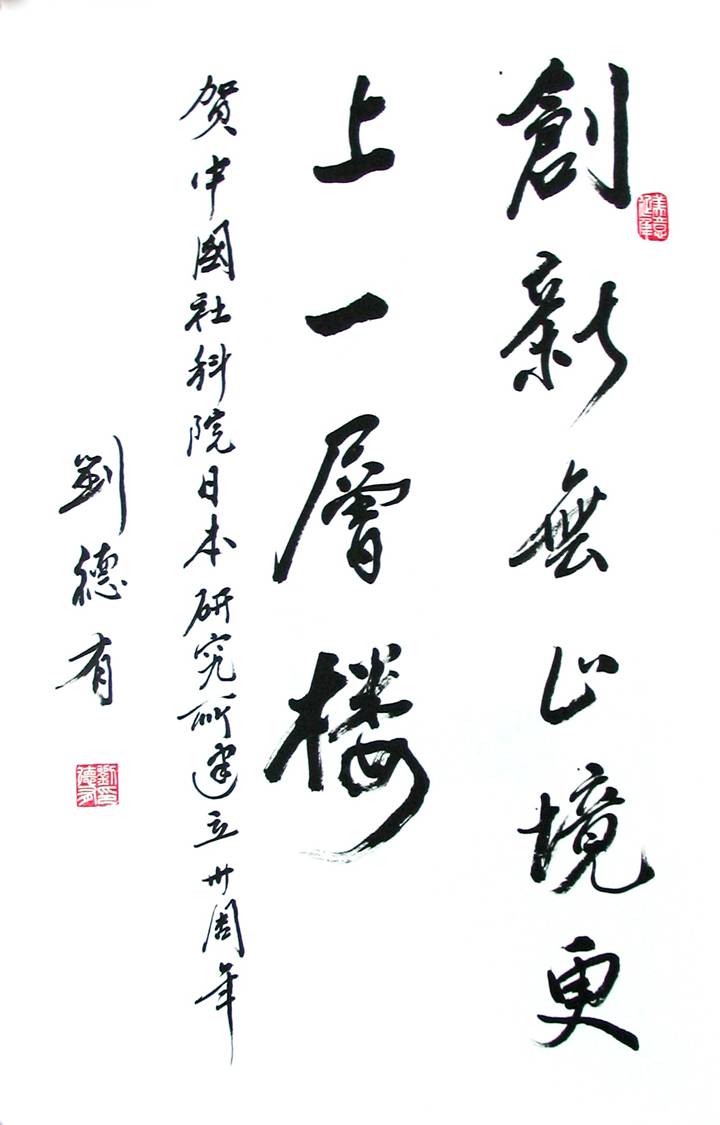 創新無止境更
上一層楼
贺中國社科院日本研究所建立卅周年
劉德有